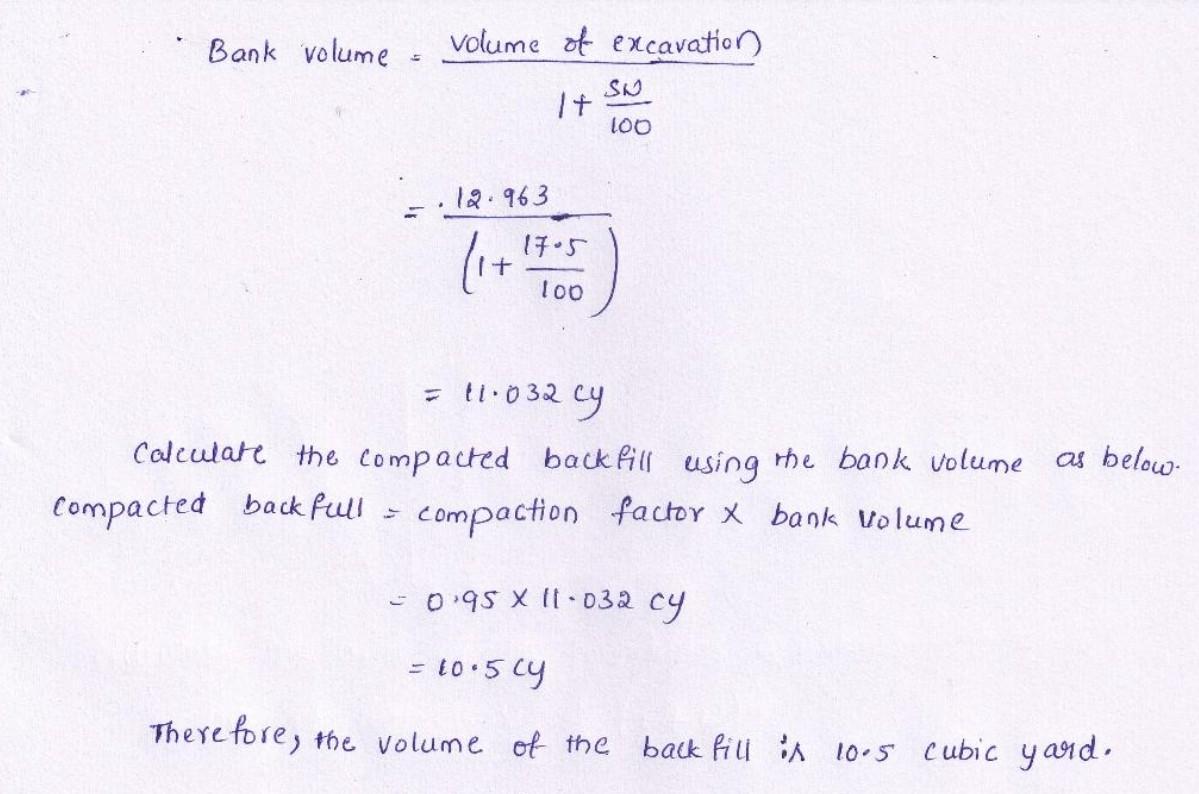 Bank volume = volume of excavation
1 + SW
100
= 12.963
(1 + 17.5
100)
= 11.032 cy
Calculate the compacted backfill using the bank volume as below.
Compacted backfull = compaction factor X bank volume
= 0.95 X 11.032 cy
= 10.5 cy
Therefore, the volume of the back fill is 10.5 cubic yard.